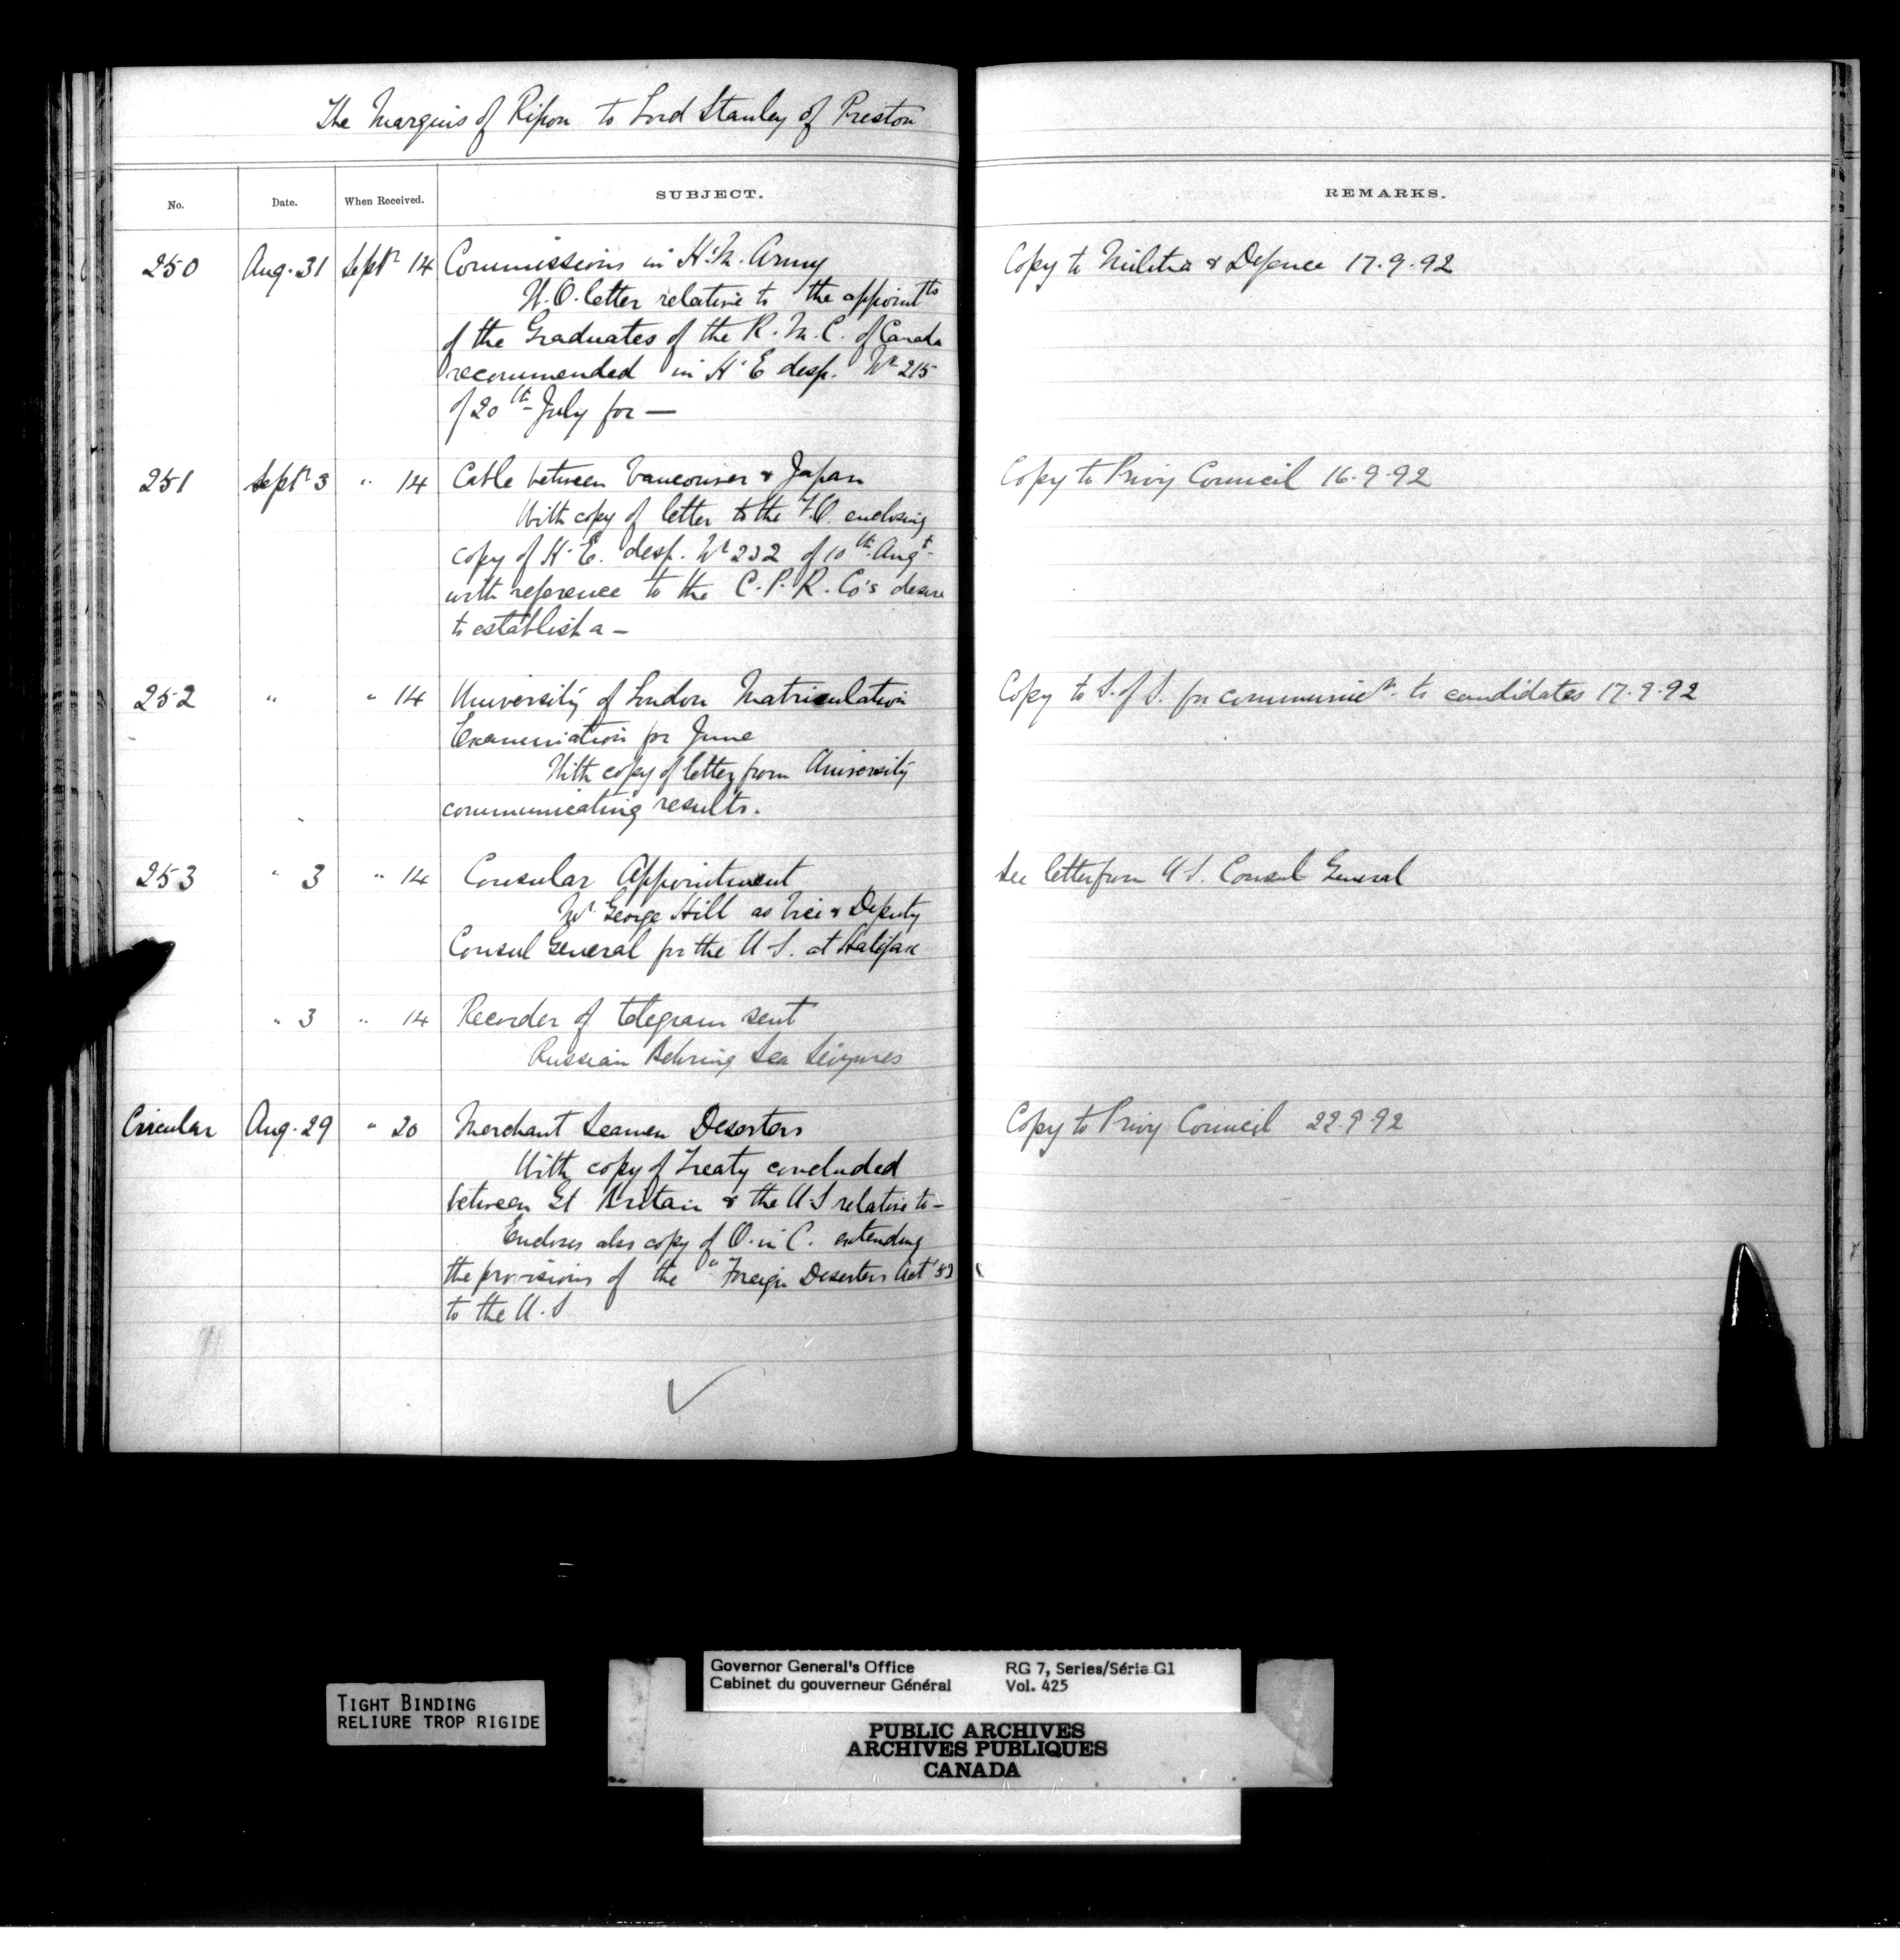 The Marquis of Ripon to Lord Stanley of Preston
No. Date. When Received. SUBJECT. REMARKS.
250 Aug. 31 Septr 14 Commissions in H. M. Army Copy to Militia & Defence 17.9.92
W. O. letter relative to the appointts
of the Graduates of the R. M. C. of Canada
recommended in H. E desp. No 215
of 20th July for —
251 Septr 3 " 14 Cable between Vancouver & Japan Copy to Privy Council 16.9.92
With copy of letter to the F. O. enclosing
copy of H. E. desp. No 232 of 10th Augt
with reference to the C. P. R. Co's desire
to establish a —
252 " " 14 University of London Matriculation Copy to S. of S. for communicn to candidates 17.9.92
Examination for June
With copy of letter from University
communicating results.
253 " 3 " 14 Consular Appointment See letter from U S. Consul General
Mr George Hill as Vice & Deputy
Consul General for the U S. at Halifax
" 3 " 14 Recorder of telegram sent
Russian Behring Sea Seizures
Circular Aug. 29 " 20 Merchant Seamen Deserters Copy to Privy Council 22.9.92
With copy of Treaty concluded
between Gt Britain & the U.S relative to —
Encloses also copy of O. in C. extending
the provisions of the "Foreign Deserters Act
to the U. S
TIGHT BINDING
RELIURE TROP RIGIDE
Governor General's Office RG 7, Series/Série G1
Cabinet du gouverneur Général Vol. 425
PUBLIC ARCHIVES
ARCHIVES PUBLIQUES
CANADA